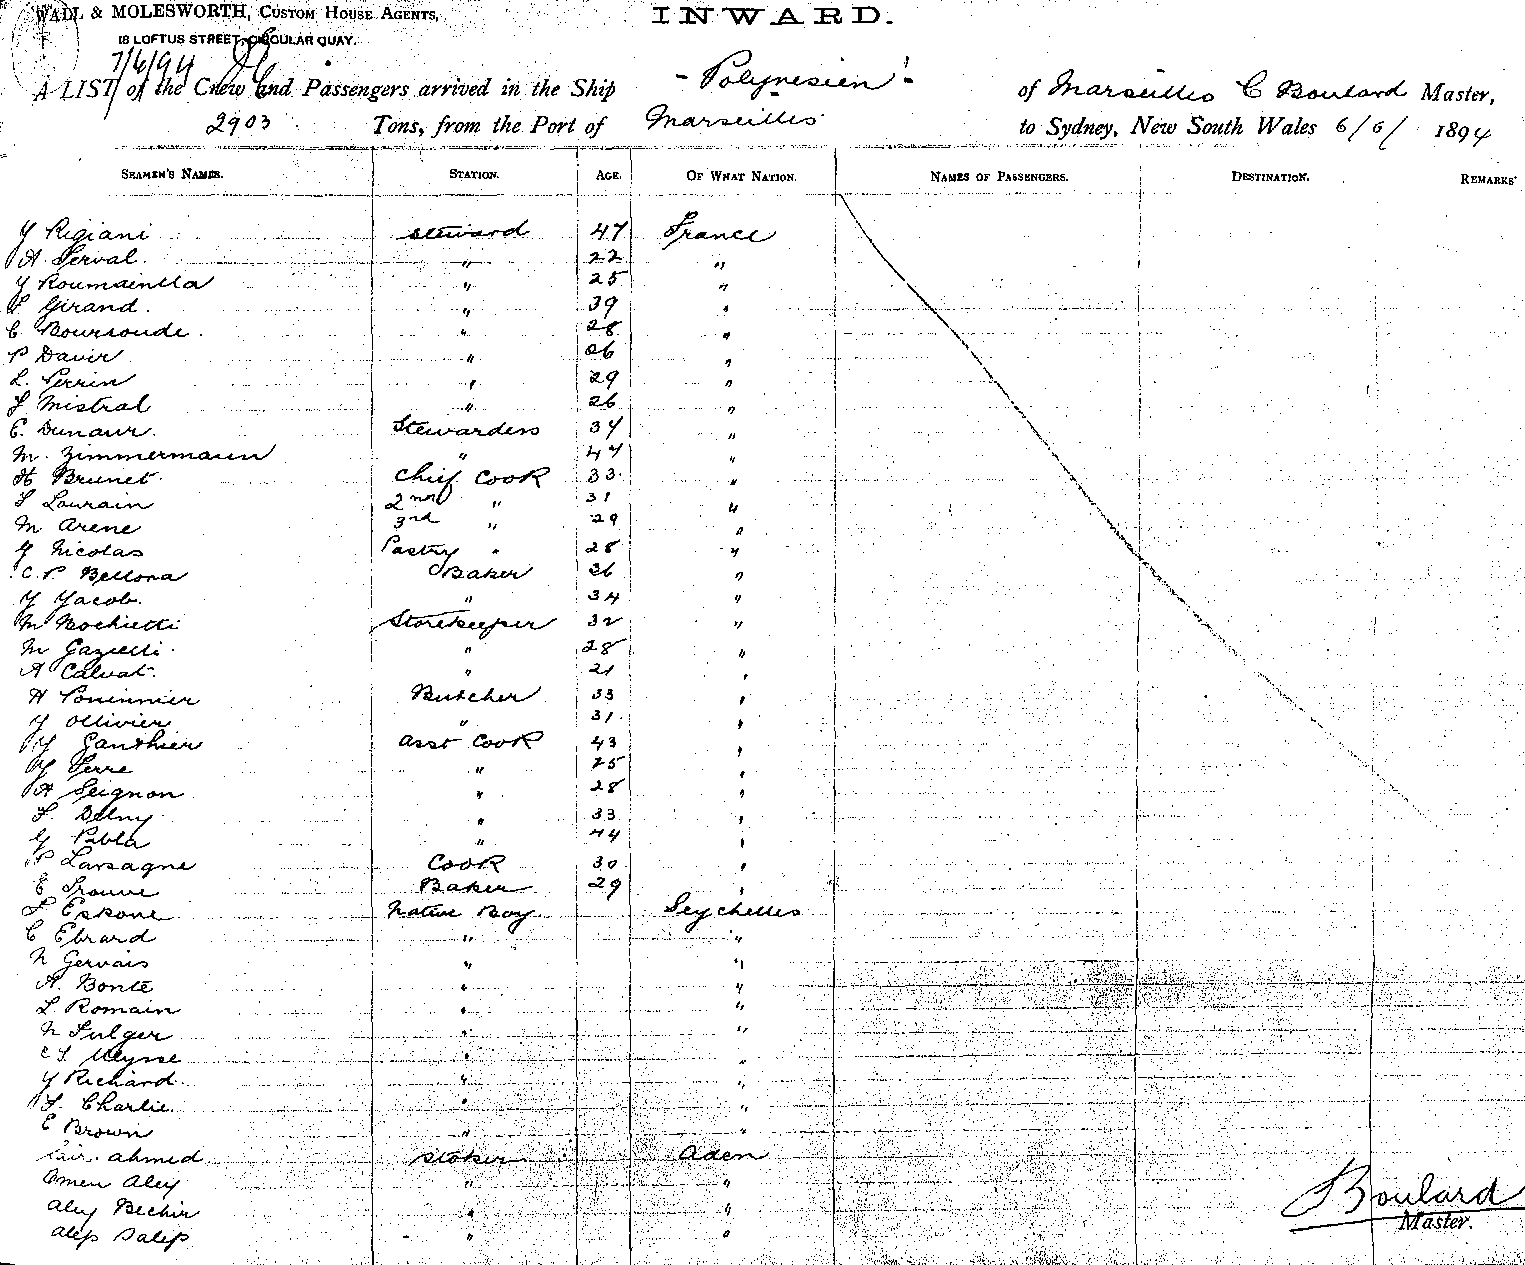 WADL & MOLESWORTH, CUSTOM HOUSE AGENTS,
18 LOFTUS STREET, CIRCULAR QUAY.
INWARD.
7/6/94
A LIST of the Crew and Passengers arrived in the Ship - Polynesien - of Marseilles C Boulard Master,
2903 Tons, from the Port of Marseilles to Sydney, New South Wales 6/6/ 1894
SEAMEN'S NAMES. STATION. AGE. OF WHAT NATION. NAMES OF PASSENGERS. DESTINATION. REMARKS
Y Rigiani steward 47 France
A Serval " 22 "
Y Roumaintla " 25 "
F Girand " 39 "
C Boursoude " 28 "
P Davir " 26 "
L. Perrin " 29 "
F Mistral " 26 "
E. Dunaur Stewardess 34 "
M. Zimmermann " 47 "
H Brunet Chief Cook 33 "
F Lourain 2nd " 31 "
M Arene 3rd " 29 "
Y Nicolas Pastry " 28 "
C. P. Bellona Baker 36 "
Y Yacob. " 34 "
M Bochietti Storekeeper 32 "
M Gazielli " 28 "
A Calvat. " 21 "
H Pouinnier Butcher 33 "
Y Ollivier " 31 "
Y Ganthier asst Cook 43 "
Y Serre " 25 "
A Seignon " 28 "
F. Delny " 33 "
Y Pabla " 44 "
P Lassagne Cook 30 "
E Trouve Baker 29 "
F Eskone Native Boy Seychelles
C Ebrard " "
N Gervais " "
A. Bonte " "
L Romain " "
N Fulger " "
C F. Ulysse " "
Y Richard " "
F. Charlie " "
E Brown " "
Ahmed stoker Aden
Omen Aley " "
Aley Bechir " "
Alep Salep " "
Boulard
Master.